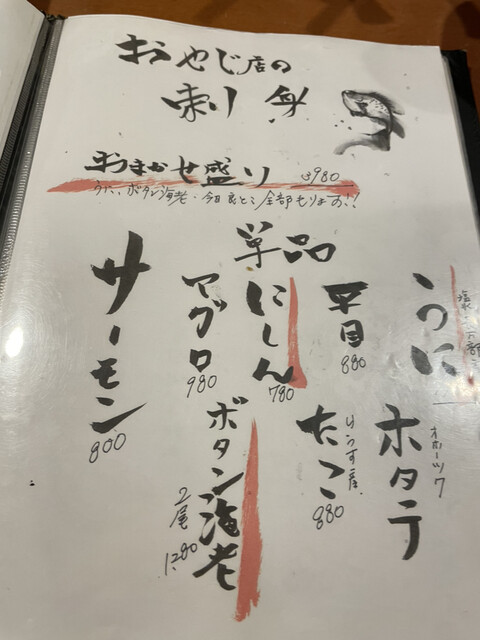 おやじ店の
刺身
おまかせ盛り 3980
うに、ボタン海老、今日良とこ全部もります!!
単品
うに
平目
880
にしん
780
マグロ
980
サーモン
800
オホーツク
ホタテ
たこ
880
ボタン海老
2尾
1280